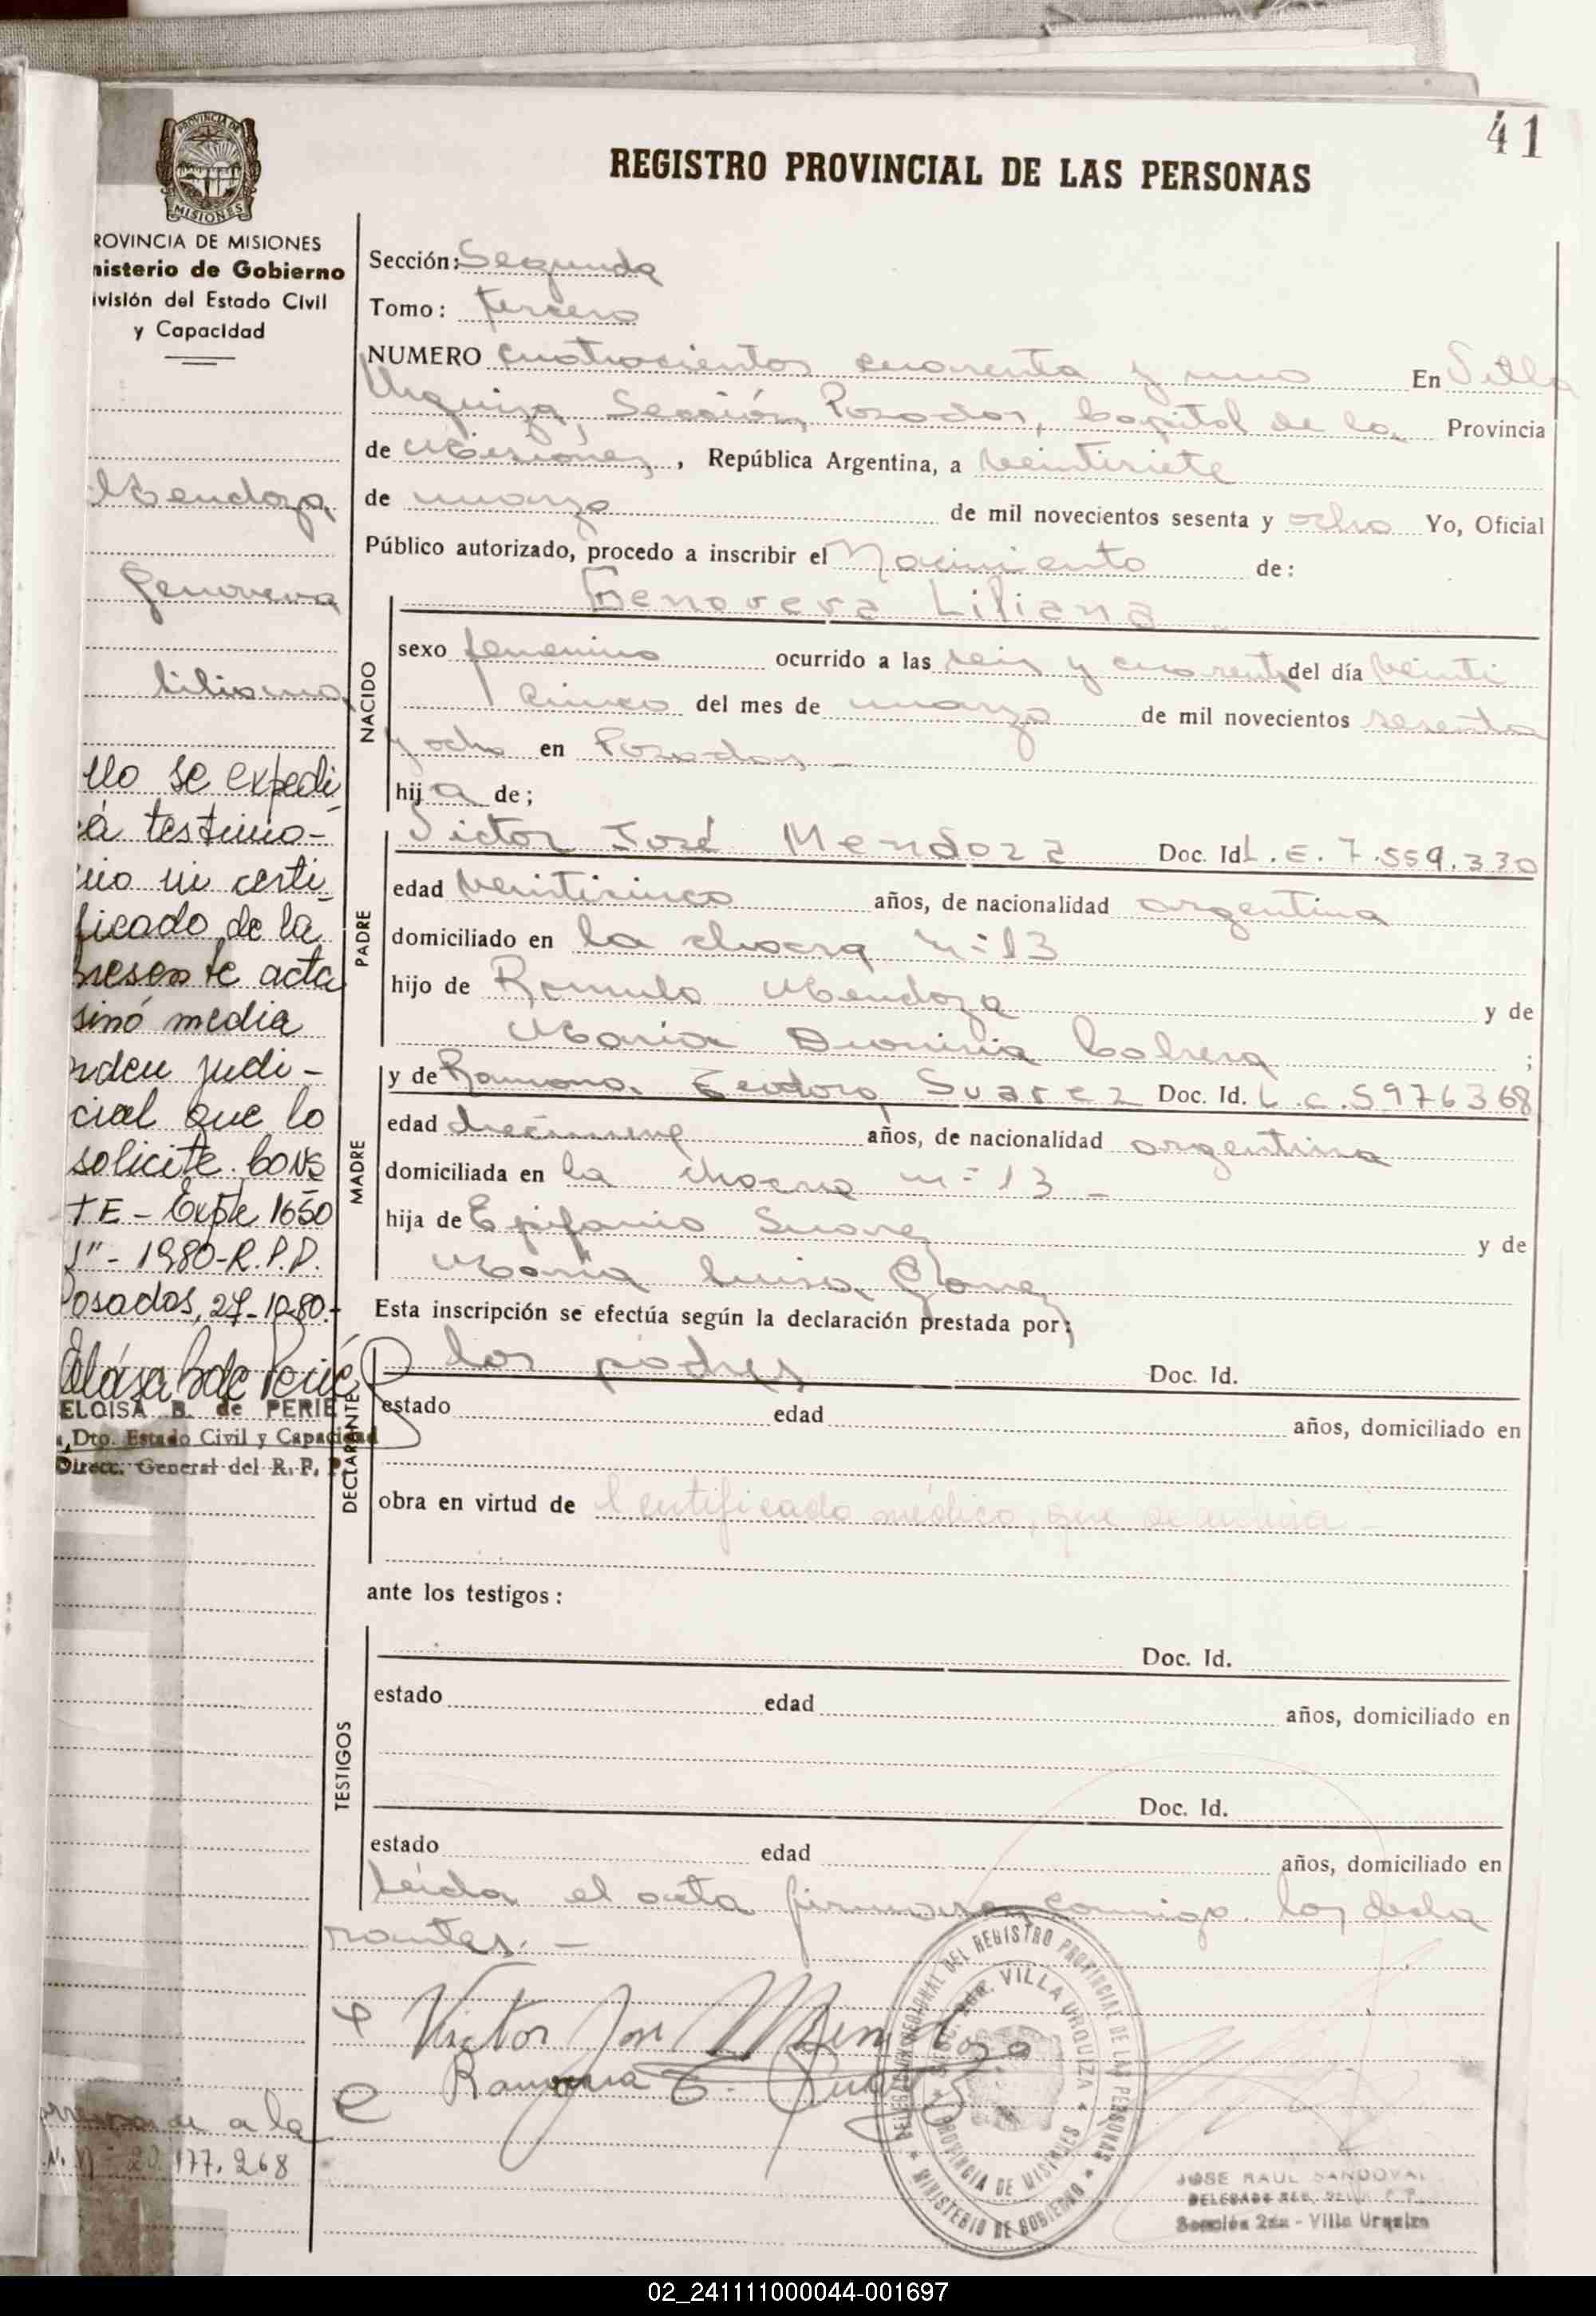 41
REGISTRO PROVINCIAL DE LAS PERSONAS
PROVINCIA DE
MISIONES
ROVINCIA DE MISIONES
nisterio de Gobierno
ivisión del Estado Civil
y Capacidad
Mendoza
Genoveva
Liliana
No se expedi
á testimo-
nio ni certi
ficado de la
presente acta
sinó media
rden judi-
cial que lo
solicite. CONS
TE - Expte 1650
1980-R.P.P.
Posadas, 27-10-80.-
ELOISA B. de PERIE
Dto. Estado Civil y Capacidad
Direcc. General del R. P. P.
a la
N. Nº 20.177.268
Sección: Segunda
Tomo: tercero
NUMERO cuatrocientos cuarenta y uno En Villa
Urquiza, Sección, Posadas, Capital de la Provincia
de Misiones, República Argentina, a veintisiete
de marzo de mil novecientos sesenta y ocho Yo, Oficial
Público autorizado, procedo a inscribir el Nacimiento de:
Genoveva Liliana
NACIDO
sexo femenino ocurrido a las seis y cuarenta del día veinti
cinco del mes de marzo de mil novecientos sesenta
y ocho en Posadas -
hija de;
PADRE
Victor José Mendoza Doc. Id L.E. 7.559.330
edad veinticinco años, de nacionalidad argentina
domiciliado en la chacra nº 13
hijo de Romulo Mendoza y de
Maria Dionicia Cabrera ;
MADRE
y de Ramona Teodora Suarez Doc. Id. L.C. 5976368
edad diecinueve años, de nacionalidad argentina
domiciliada en la chacra nº 13 -
hija de Epifanio Suarez y de
Maria Luisa Gomez
Esta inscripción se efectúa según la declaración prestada por;
DECLARANTE
los padres Doc. Id.
estado edad años, domiciliado en
obra en virtud de certificado médico, que se archiva -
ante los testigos:
TESTIGOS
Doc. Id.
estado edad años, domiciliado en
Doc. Id.
estado edad años, domiciliado en
Leida el acta firmaron conmigo los decla
rantes. -
Victor José Mendoza
Ramona T. Suarez
DEL REGISTRO PROVINCIAL DE LAS PERSONAS
MINISTERIO DE GOBIERNO
VILLA URQUIZA
PROVINCIA DE MISIONES
JOSE RAUL SANDOVAL
Sección 2da - Villa Urquiza
02_241111000044-001697